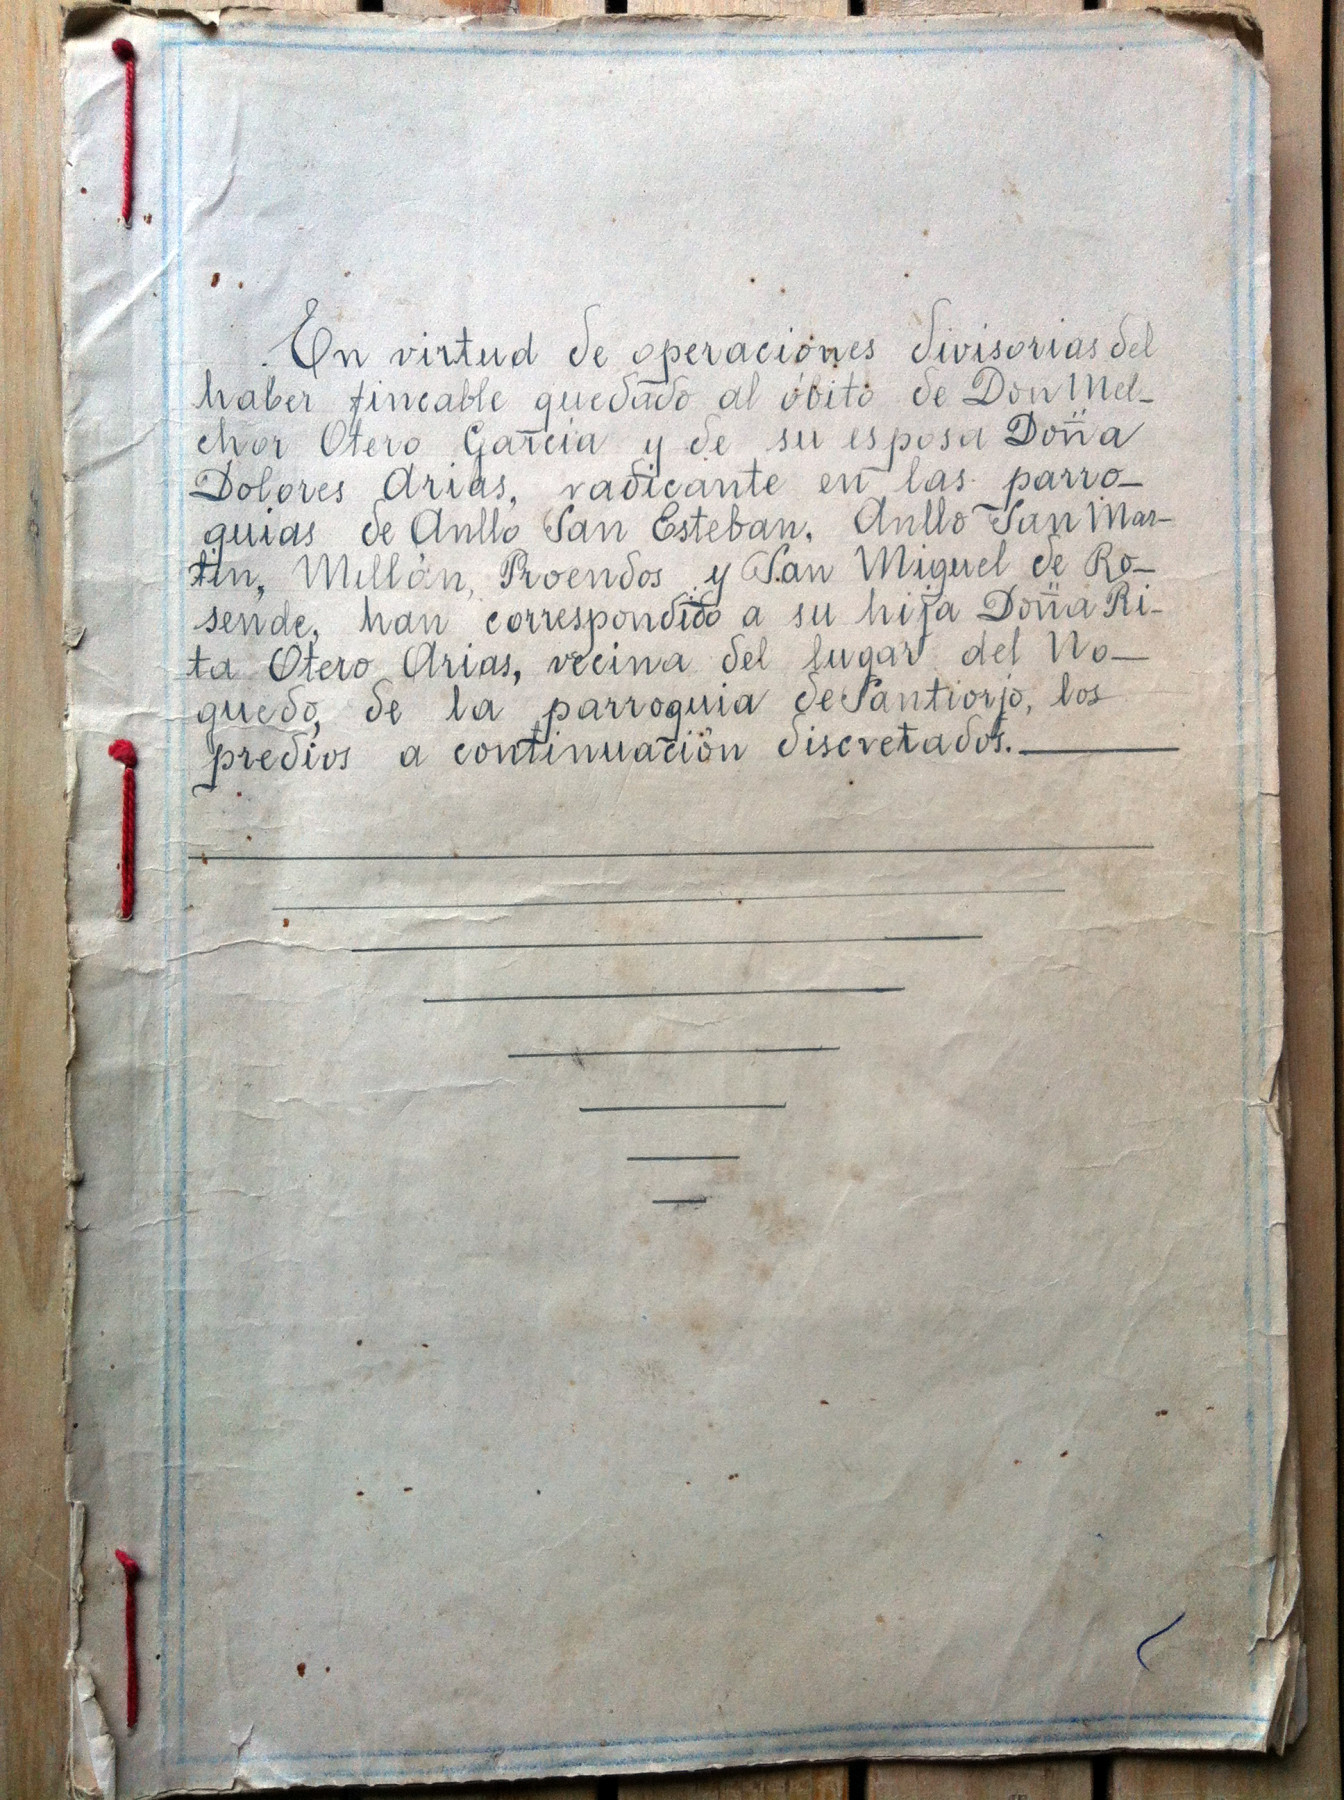 En virtud de operaciones divisorias del
haber fincable quedado al óbito de Don Mel-
chor Otero García y de su esposa Doña
Dolores Arias, radicante en las parro-
quias de Anllo San Esteban, Anllo San Mar-
tín, Millán, Proendos y San Miguel de Ro-
sende, han correspondido a su hija Doña Ri-
ta Otero Arias, vecina del lugar del No-
guedo, de la parroquia de Santiorjo, los
predios a continuación discretados.